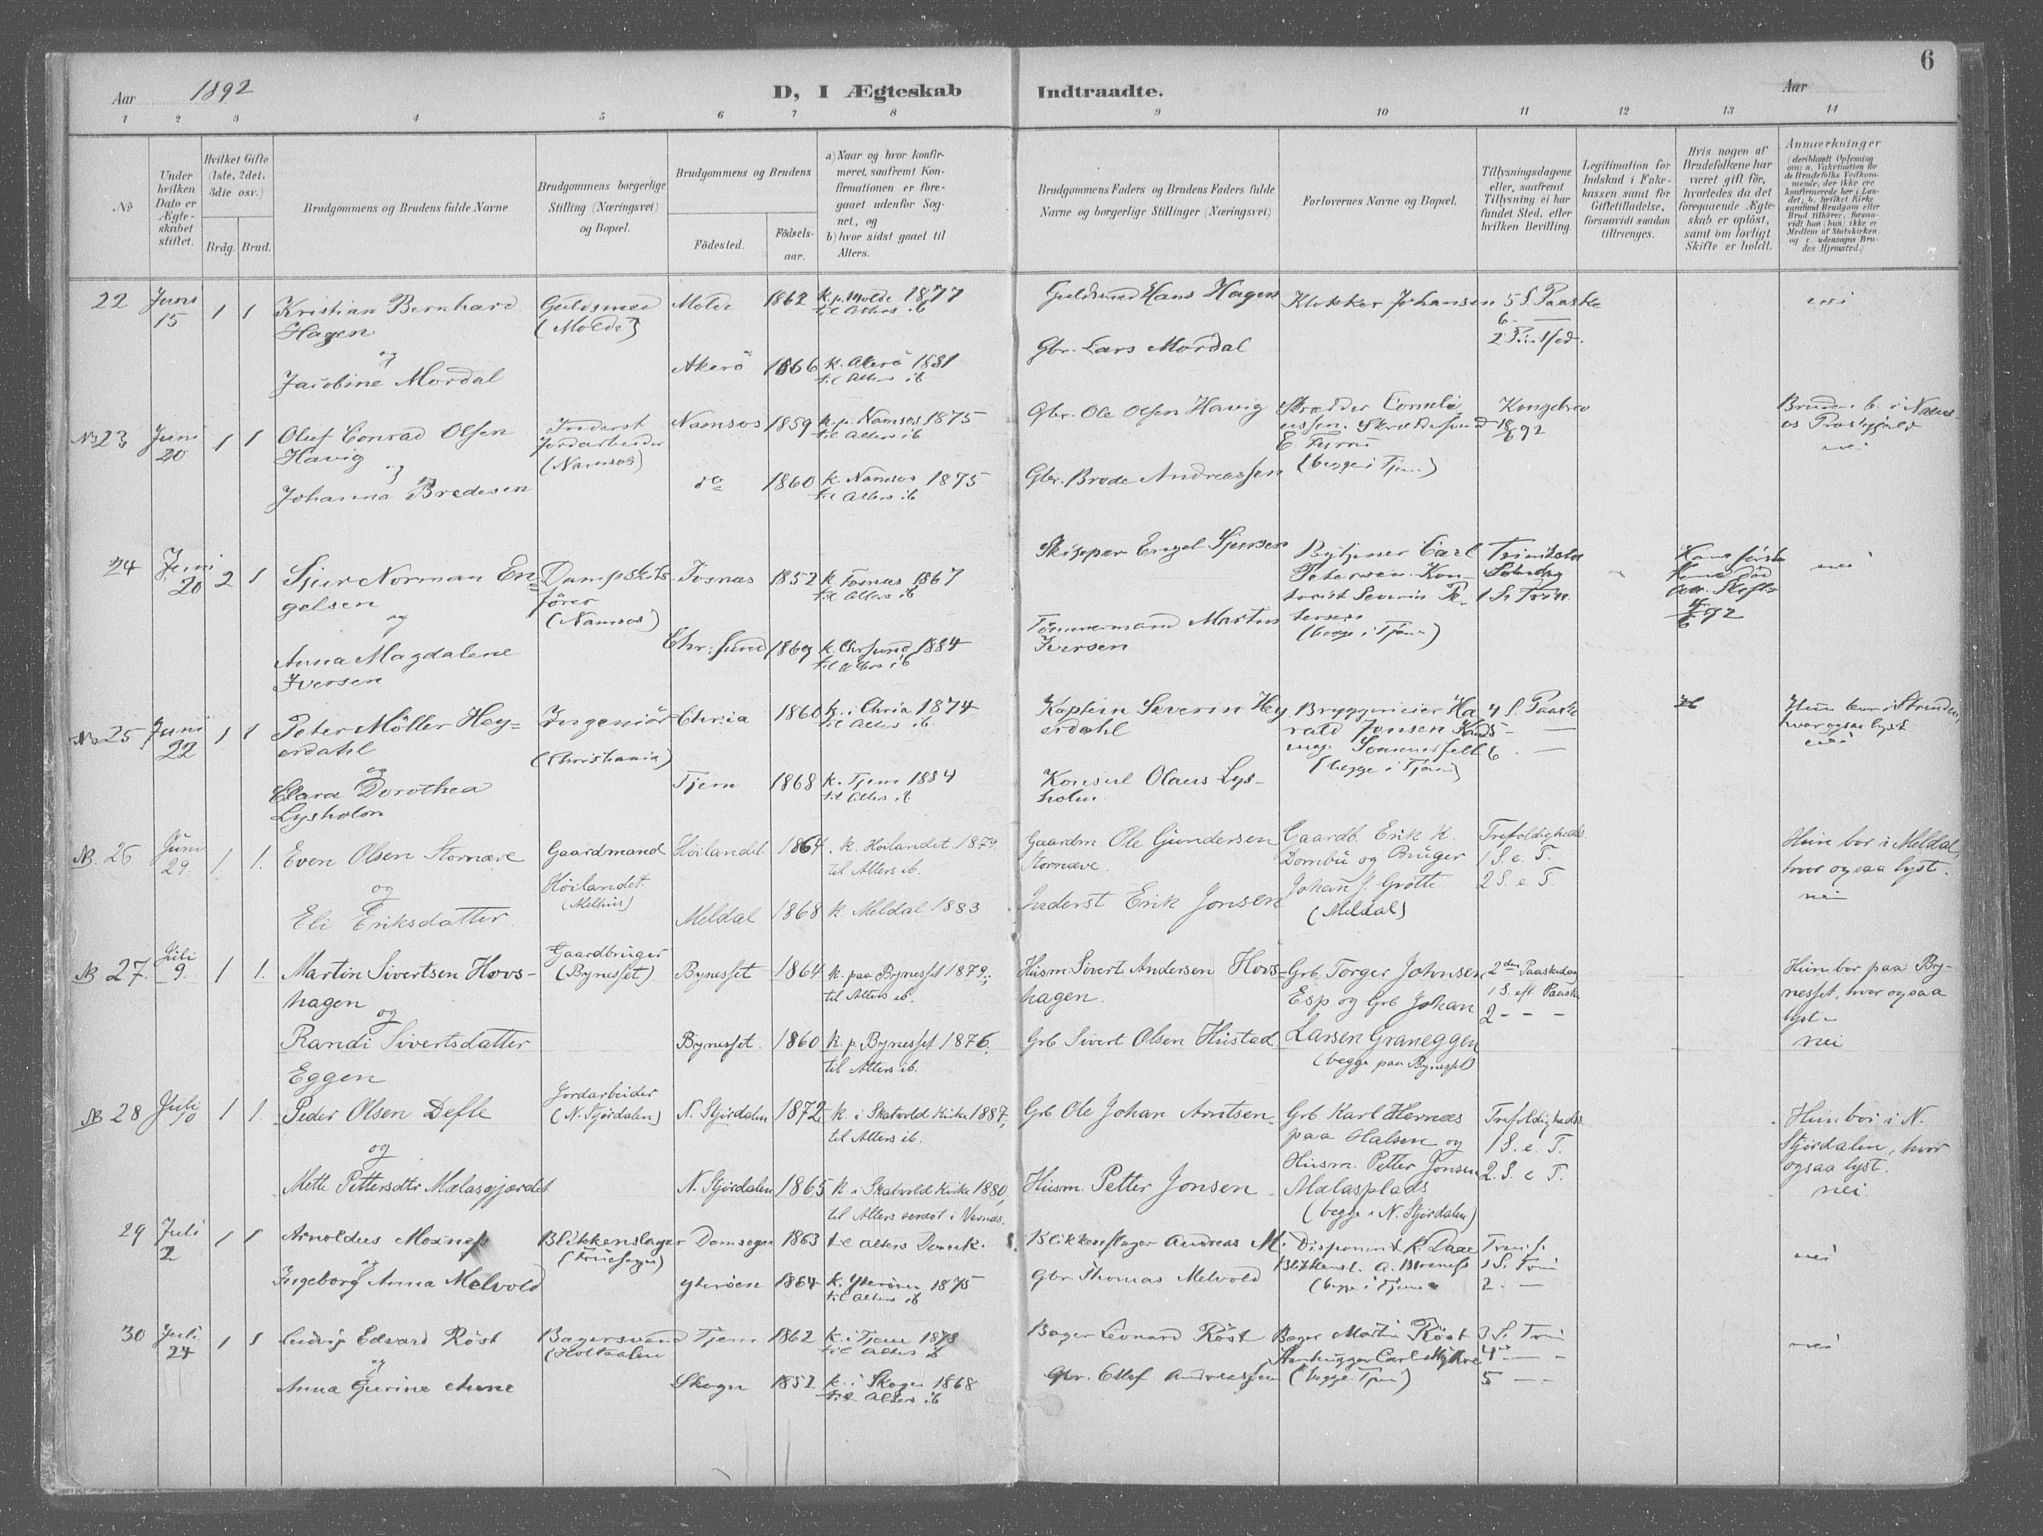 6
Aar 1892
D, I Ægteskab Indtraadte.
Aar
1 2 3 4 5 6 7 8 9 10 11 12 13 14
No
Under hvilken Dato er Ægteskabet stiftet.
Hvilket Gifte (1ste, 2det, 3die osv.)
Brdg. Brud.
Brudgommens og Brudens fulde Navne
Brudgommens borgerlige Stilling (Næringsvei) og Bopæl.
Brudgommens og Brudens
Födested.
Födselsaar.
a) Naar og hvor konfirmeret, saafremt Konfirmationen er foregaaet udenfor Sognet, og
b) hvor sidst gaaet til Alters.
Brudgommens Faders og Brudens Faders fulde Navne og borgerlige Stillinger (Næringsvei)
Forlovernes Navne og Bopæl.
Tillysningsdagene eller, saafremt Tillysning ei har fundet Sted, efter hvilken Bevilling.
Legitimation for Indskud i Enkekassen samt for Giftetilladelse, forsaavidt saadan tiltrænges.
Hvis nogen af Brudefolkene har været gift før, hvorledes da det foregaaende Ægteskab er opløst, samt om lovligt Skifte er holdt.
Anmærkninger
22 Juni 15 1 1 Kristian Bernhard Hagen
og
Jacobine Mordal
Guldsmed (Molde)
Molde 1862 k. p. Molde 1877 til Alters ib
Akerö 1866 k. Akerö 1881 til Alters ib
Guldsmed Hans Hagen
Gbr. Lars Mordal
Klokker Johansen
5 S. Paaske
6 —
nei
No 23 Juni 20 1 1 Oluf Conrad Olsen Havig
og
Johanna Bredesen
Inderst Jordarbeider (Namsos)
Namsos 1859 k. p. Namsos 1875 til Alters ib
do 1860 k. Namsos 1875 til Alters ib
Gbr. Ole Olsen Havig
Gbr. Brede Andreassen
(begge i Tjem)
Kongebrev
nei
24 Juni 20 2 1 Sjur Norman Engelsen
og
Anna Magdalene Iversen
Dampskibsfører (Namsos)
Fosnæs 1852 k. Fosnæs 1867 til Alters ib
Chr:sund 1869 k. Chrsund 1884 til Alters ib
Skipper Engel Sjursen
Tömmermand Martin Iversen
Carl Petersen Severin Petersen
(begge i Tjem)
1 S. Trin.
nei
No 25 Juni 22 1 1 Peter Möller Heyerdahl
og
Clara Dorothea Lysholm
Ingeniör (Christiania)
Chr:ia 1860 k. i Chria 1874 til Alters ib.
Tjem 1868 k. Tjem 1884 til Alters ib
Kaptein Severin Heyerdahl
Konsul Olaus Lysholm
Harald Jensen
(begge i Tjem)
4 S. Paaske
5 —
6 —
Hun bor i Strinden, hvor ogsaa lyst
nei
NB. 26 Juni 29 1 1. Even Olsen Stornæve
og
Eli Eriksdatter
Gaardmand Höilandet. (Melhus)
Höilandet. 1864. k. Höilandet. 1879. til Alters ib.
Meldal 1868 k. Meldal 1883
Gaardm Ole Gundersen Stornæve.
Inderst Erik Jonsen
Gaardb. Erik K. Dombu og Bruger Johan J. Grötte. (Meldal)
Trefoldigheds.
1 S. e. T.
2 S. e. T.
Hun bor i Meldal, hvor ogsaa lyst.
nei
NB 27. Juli 9. 1 1. Martin Sivertsen Hovshagen
og
Randi Sivertsdatter Eggen
Gaardbruger (Bynesset)
Bynesset 1864 k. paa Bynesset 1879.; til Alters ib.
Bynesset. 1860 k. p. Bynesset 1876, til Alters ib.
Husm Sivert Andersen Hovshagen.
Grb Sivert Olsen Hustad.
Grb Torger Johnsen Esp og Grb Johan Larsen Graneggen
(begge paa Bynesset)
2den Paaskedag
1 S. eft. Paaske
2 - - -
Hun bor paa Bynesset, hvor ogsaa lyst -
nei
NB 28 Juli 10 1 1. Peder Olsen Defle
og
Mette Pettersdtr Mælasgjærdet
Jordarbeider (N. Stjördalen)
N. Stjördalen 1872 k i Skatvold Kirke 1887, til Alters ib.
N. Stjördalen 1865 k i Skatvold Kirke 1880, til Alters senest i Værnes.
Grb Ole Johan Arntsen
Husm. Petter Jonsen
Grb Karl Hernæs paa Halsen og Husm. Petter Jonsen Mælasplads
(begge i N. Stjördalen)
Trefoldigheds.
1 S. e. T.
2. S. e T.
Hun bor i N. Stjördalen, hvor ogsaa lyst.
nei.
29 Juli 2 1 1 Arnoldus Moxnes
og
Ingeborg Anna Melvold
Blikkenslager
Domsogn 1863 til Alters Domk.
Ytterøen 1864 k. Ytterøen 1875 til Alters ib
Blikkenslager Andreas M.
Gbr Thomas Melvold
Disponent K. Daae
(begge i Tjem)
1 S. Trin
2 —
nei
30 Juli 24 1 1 Ludvig Edvard Röst
og
Anna Gurine Aune
Bagersvend (Holtaalen
Tjem 1862 k. i Tjem 1878 til Alters ib
Skogn 1852 k. i Skogn 1868 til Alters ib
Bager Leonard Röst
Gbr. Ellef Andreassen
Bager Martin Röst
(begge Tjem)
3 S. Trin
4 — —
5 — —
nei